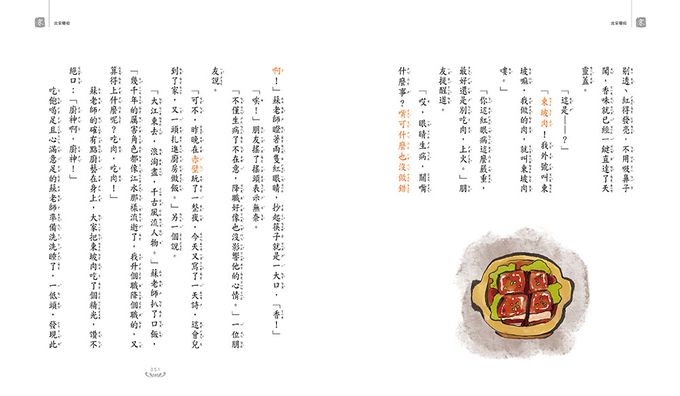 別透、紅得發亮,不用吸鼻子
聞,香味就已經一鍵直達了天
靈蓋。
「這是——?」
「東坡肉!我外號叫東
坡嘛,我做的肉,就叫東坡肉
嘍。」
「你這紅眼病這麼嚴重,
最好還是別吃肉,上火。」朋
友提醒道。
「哎,眼睛生病,關嘴
什麼事?嘴可什麼也沒做錯
啊!」蘇老師瞪著兩隻紅眼睛,抄起筷子就是一大口,「香!」
「唉!」朋友搖了搖頭表示無奈。
「不僅生病了不在意,降職好像也沒影響他的心情。」一位朋
友說。
「可不,昨晚在赤壁玩了一整夜,今天又寫了一天詩,這會兒
到了家,又一頭扎進廚房做飯。」另一個說。
「大江東去,浪淘盡,千古風流人物。」蘇老師扒了口飯,
「幾千年的厲害角色都像江水那樣流逝了,我升個職降個職的,又
算得上什麼呢?吃肉,吃肉!」
蘇老師的確有點廚藝在身上,大家把東坡肉吃了個精光,讚不
絕口:「廚神啊,廚神!」
吃飽喝足且心滿意足的蘇老師準備洗洗睡了,一低頭,發現此
051